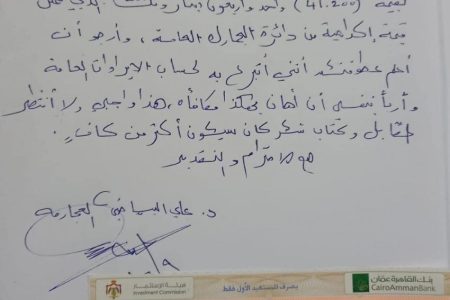 بقيمة (41.200) واحد وأربعون دينار و
قيمة إكرامية من دائرة الجمارك العامة، وأرجو أن
أعلم عطوفتكم أنني أتبرع به لحساب الايرادات العامة
وأربأ بنفسي أن أهان بهكذا مكافأة، هذا واجبي ولا أنتظر
مقابل وكتاب شكر كان سيكون أكثر من كاف.
مع الاحترام والتقدير
د. علي العجارمة
هيئة الإستثمار
Investment Commission
يصرف للمستفيد الأول فقط
بنك القاهرة عمان
Cairo Amman Bank